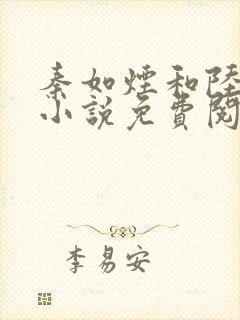 秦如煙和陸
小說免費閱
李易安